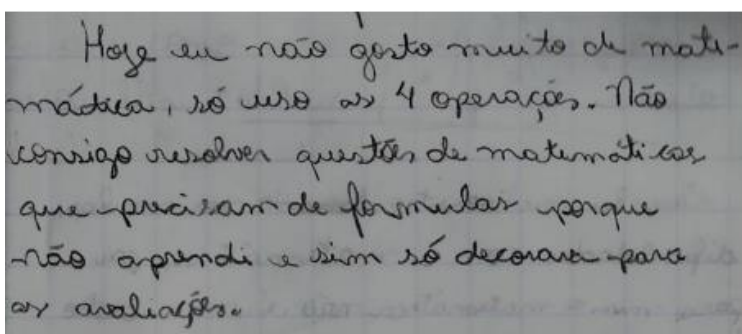 Hoje eu não gosto muito de mate-
mática, só uso as 4 operações. Não
consigo resolver questões de matemáticas
que precisam de formulas porque
não aprendi e sim só decorava para
as avaliações.